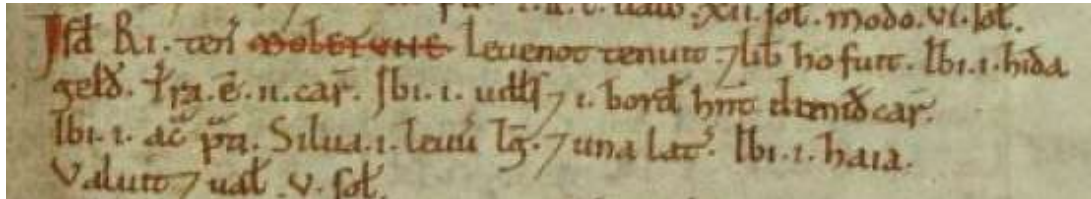 xii. sol. modo. vi. sol.
Isd̄ Ri. teñ MOLETUNE Leuenot tenuit. ⁊ lib̄ ho fuit. Ibi. i. hida
geld̄. Tr̄a. ē. ii. car̄. Ibi. i. uills̄ ⁊ i. bord̄ hn̄t dimid̄ car̄.
Ibi. i. ac̄ p̄ti. Silua. i. leuū lḡ. ⁊ una lat̄. Ibi. i. haia.
Valuit ⁊ ual̄. v. sol̄.